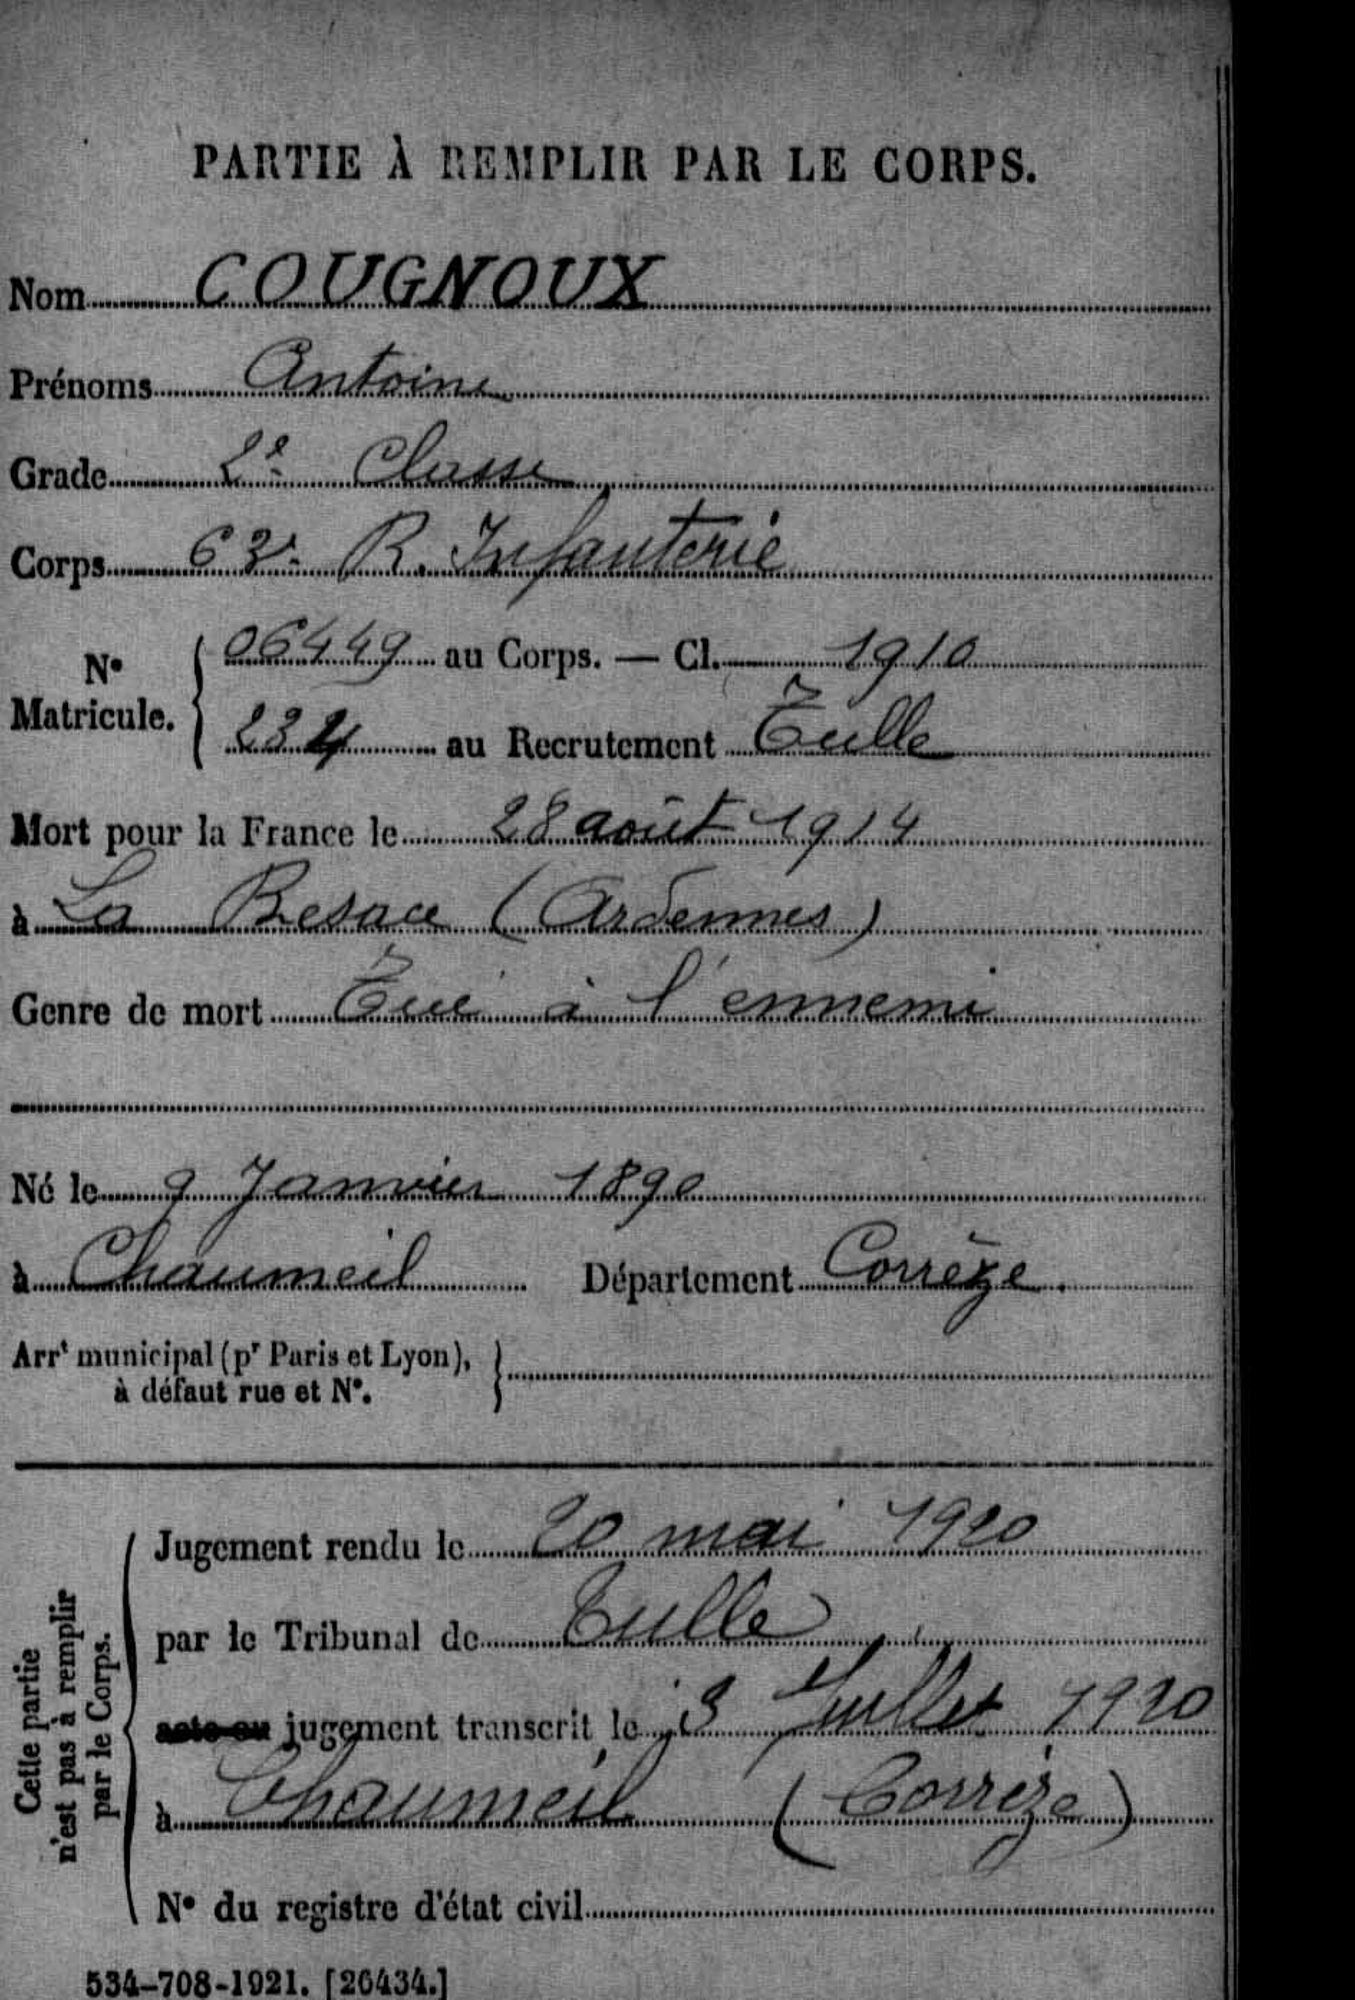 PARTIE À REMPLIR PAR LE CORPS.
Nom COUGNOUX
Prénoms Antoine
Grade 2e Classe
Corps 63e R. Infanterie
No Matricule. { 06449 au Corps. — Cl. 1910
234 au Recrutement Tulle
Mort pour la France le 28 août 1914
à La Besace (Ardennes)
Genre de mort Tué à l'ennemi
Né le 9 Janvier 1890
à Chaumeil Département Corrèze.
Arrt municipal (pr Paris et Lyon),
à défaut rue et No.
Cette partie
n'est pas à remplir
par le Corps.
Jugement rendu le 20 mai 1920
par le Tribunal de Tulle
acte ou jugement transcrit le 3 Juillet 1920
à Chaumeil (Corrèze)
No du registre d'état civil
534-708-1921. [26434.]